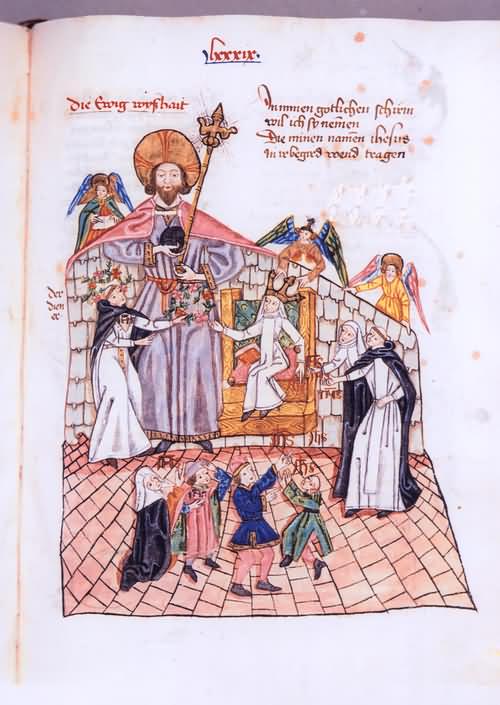 lxxxix.
die Ewig wyshait
In minen götlichen schirm
wil ich sy nemen
Die minen namen ihesus
in irbegird wend tragen
der
dien
er
IHS
IHS
IHS